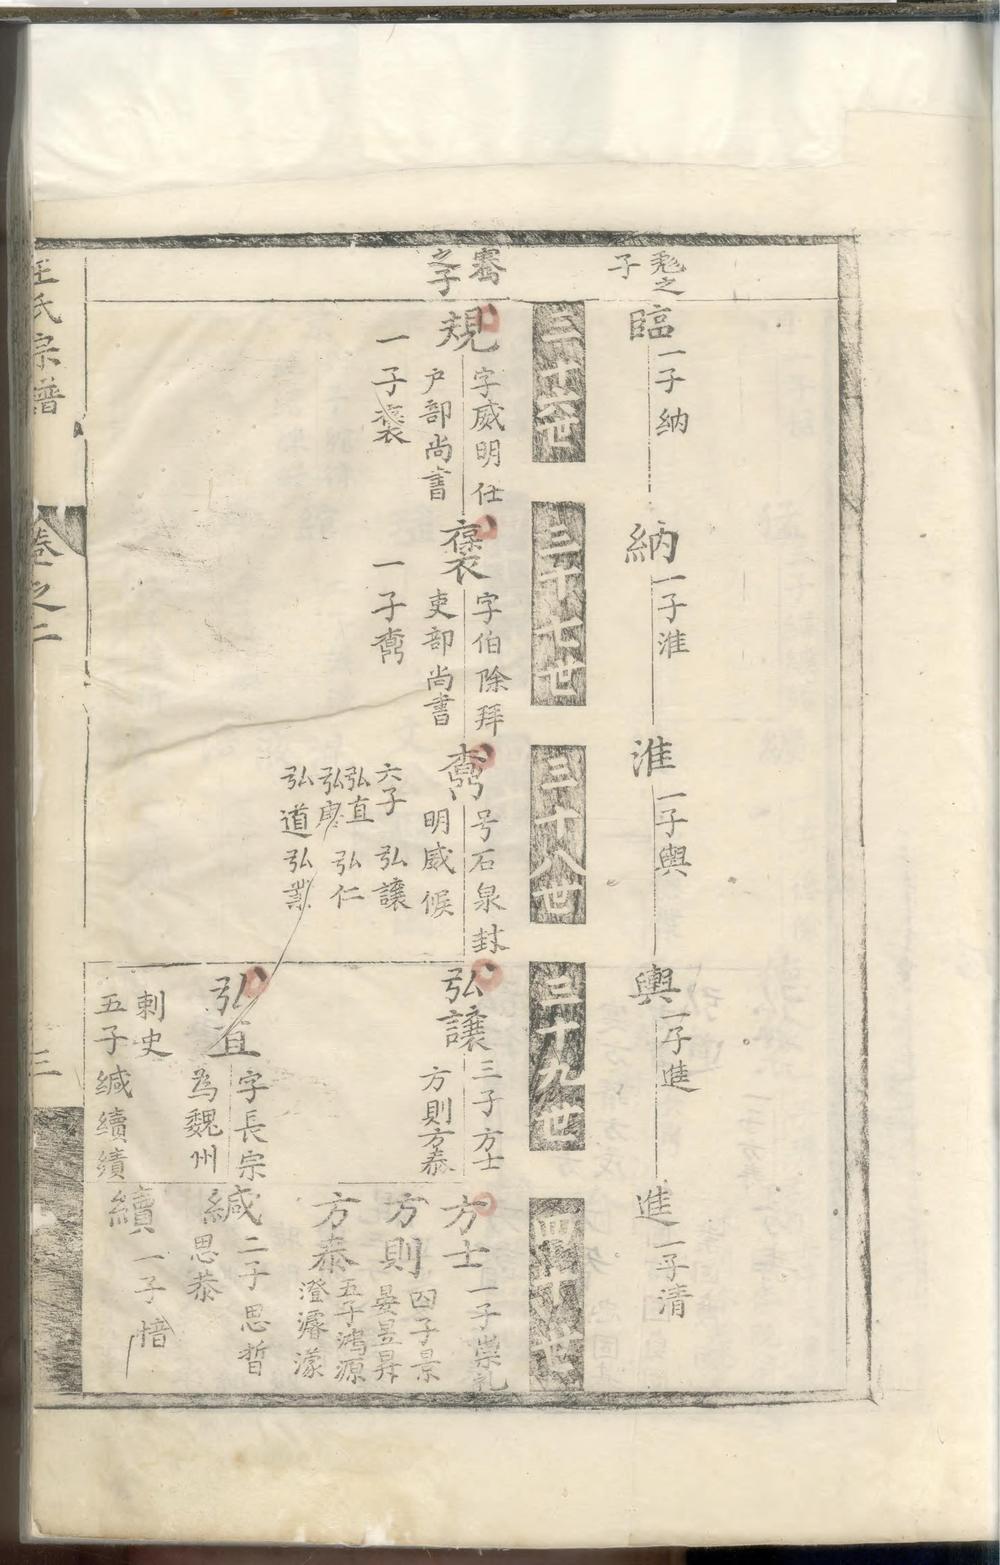 臨
一子納
納
一子淮
淮
一子輿
輿
一子進
進
一子清
三十六世
三十七世
三十八世
三十九世
四十世
騫
之子
規
字威明仕
戶部尚書
一子褒
褒
字伯除拜
吏部尚書
一子鼒
鼒
号石泉封
明威候
六子 弘讓
弘直 弘仁
弘道 弘業
弘讓
三子方士
方則方泰
方士
一子崇礼
方則
四子景
晏昱昇
方泰
五子鴻源
澄濬濛
弘直
字長宗
為魏州
刺史
五子緘續績
緘
二子思晢
思恭
續
一子愔
王氏宗譜
卷之二
三